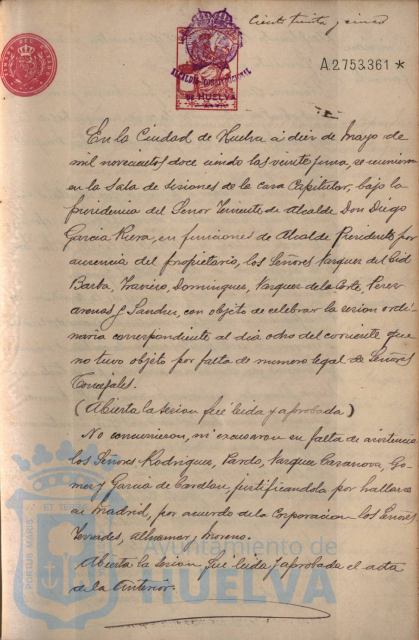 Ciento treinta y cinco
A.2.753.361 *
ALCALDIA CONSTITUCIONAL
DE HUELVA
En la Ciudad de Huelva á diez de Mayo de
mil novecientos doce siendo las veinte y una, se reunieron
en la Sala de sesiones de la casa Capitular, bajo la
presidencia del Señor Teniente de Alcalde Don Diego
Garcia Riera, en funciones de Alcalde Presidente, por
ausencia del propietario, los Señores Vazquez del Cid
Barba, Traviero, Dominguez, Vazquez de la Corte, Perez
y Sanchez, con objeto de celebrar la sesion ordi-
naria correspondiente al dia ocho del corriente que
no tuvo objeto por falta de numero legal de Señores
Concejales.
(Abierta la sesion fué leida y aprobada)
No concurrieron, ni excusaron su falta de asistencia
los Señores Rodriguez, Pardo, Vazquez Casanova, Go-
mez y Garcia de justificandola por hallarse
en Madrid, por acuerdo de la Corporacion los Señores
Terrades, y Moreno.
Abierta la sesion fué leida y aprobada el acta
de la anterior.
PORTUS MARIS
ET TERRÆ
Ayuntamiento de
HUELVA